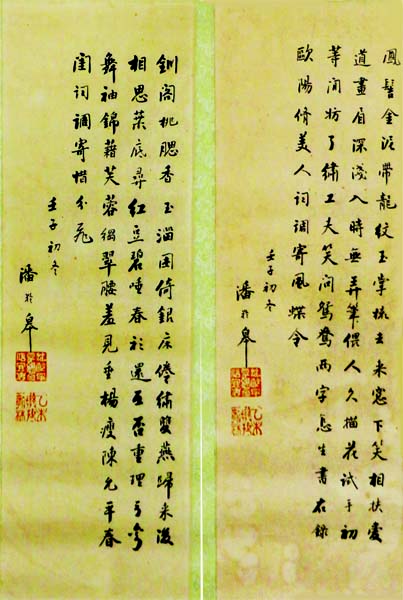 鳳髻金泥帶龍紋玉掌梳去來窓下笑相扶愛
道畫眉深淺入時無弄筆偎人久描花試手初
等閒妨了繡工夫笑問鴛鴦兩字怎生書右錄
歐陽脩美人詞調寄風蝶令
壬子初冬
潘齡皋
釧閣桃腮香玉溜困倚銀床倦繡雙燕歸來後
相思葉底尋紅豆碧唾春衫還在否重理弓彎
舞袖錦藉芙蓉縐翠腰羞見垂楊瘦陳允平春
閨詞調寄惜分飛
壬子初冬
潘齡皋